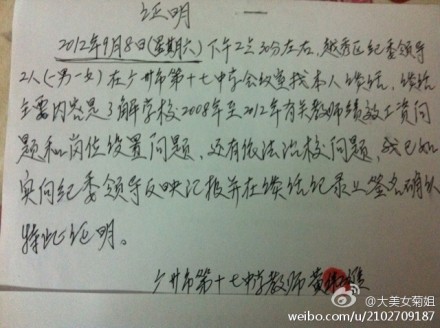 证明
2012年9月8日(星期六)下午2点30分左右,越秀区纪委领导
2人(一男一女)在广州市第十七中学会议室找本人谈话。谈话
主要内容是了解学校2008年至2012年有关教师绩效工资问
题和岗位设置问题,还有依法治校问题,我已如
实向纪委领导反映汇报并在谈话纪录上签名确认
特此证明。
广州市第十七中学教师 黄
@大美女菊姐
weibo.com/u/2102709187